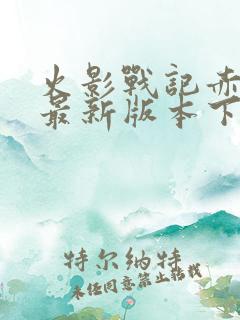 火影戰記赤
最新版本下
特尔纳特
未经同意禁止转载